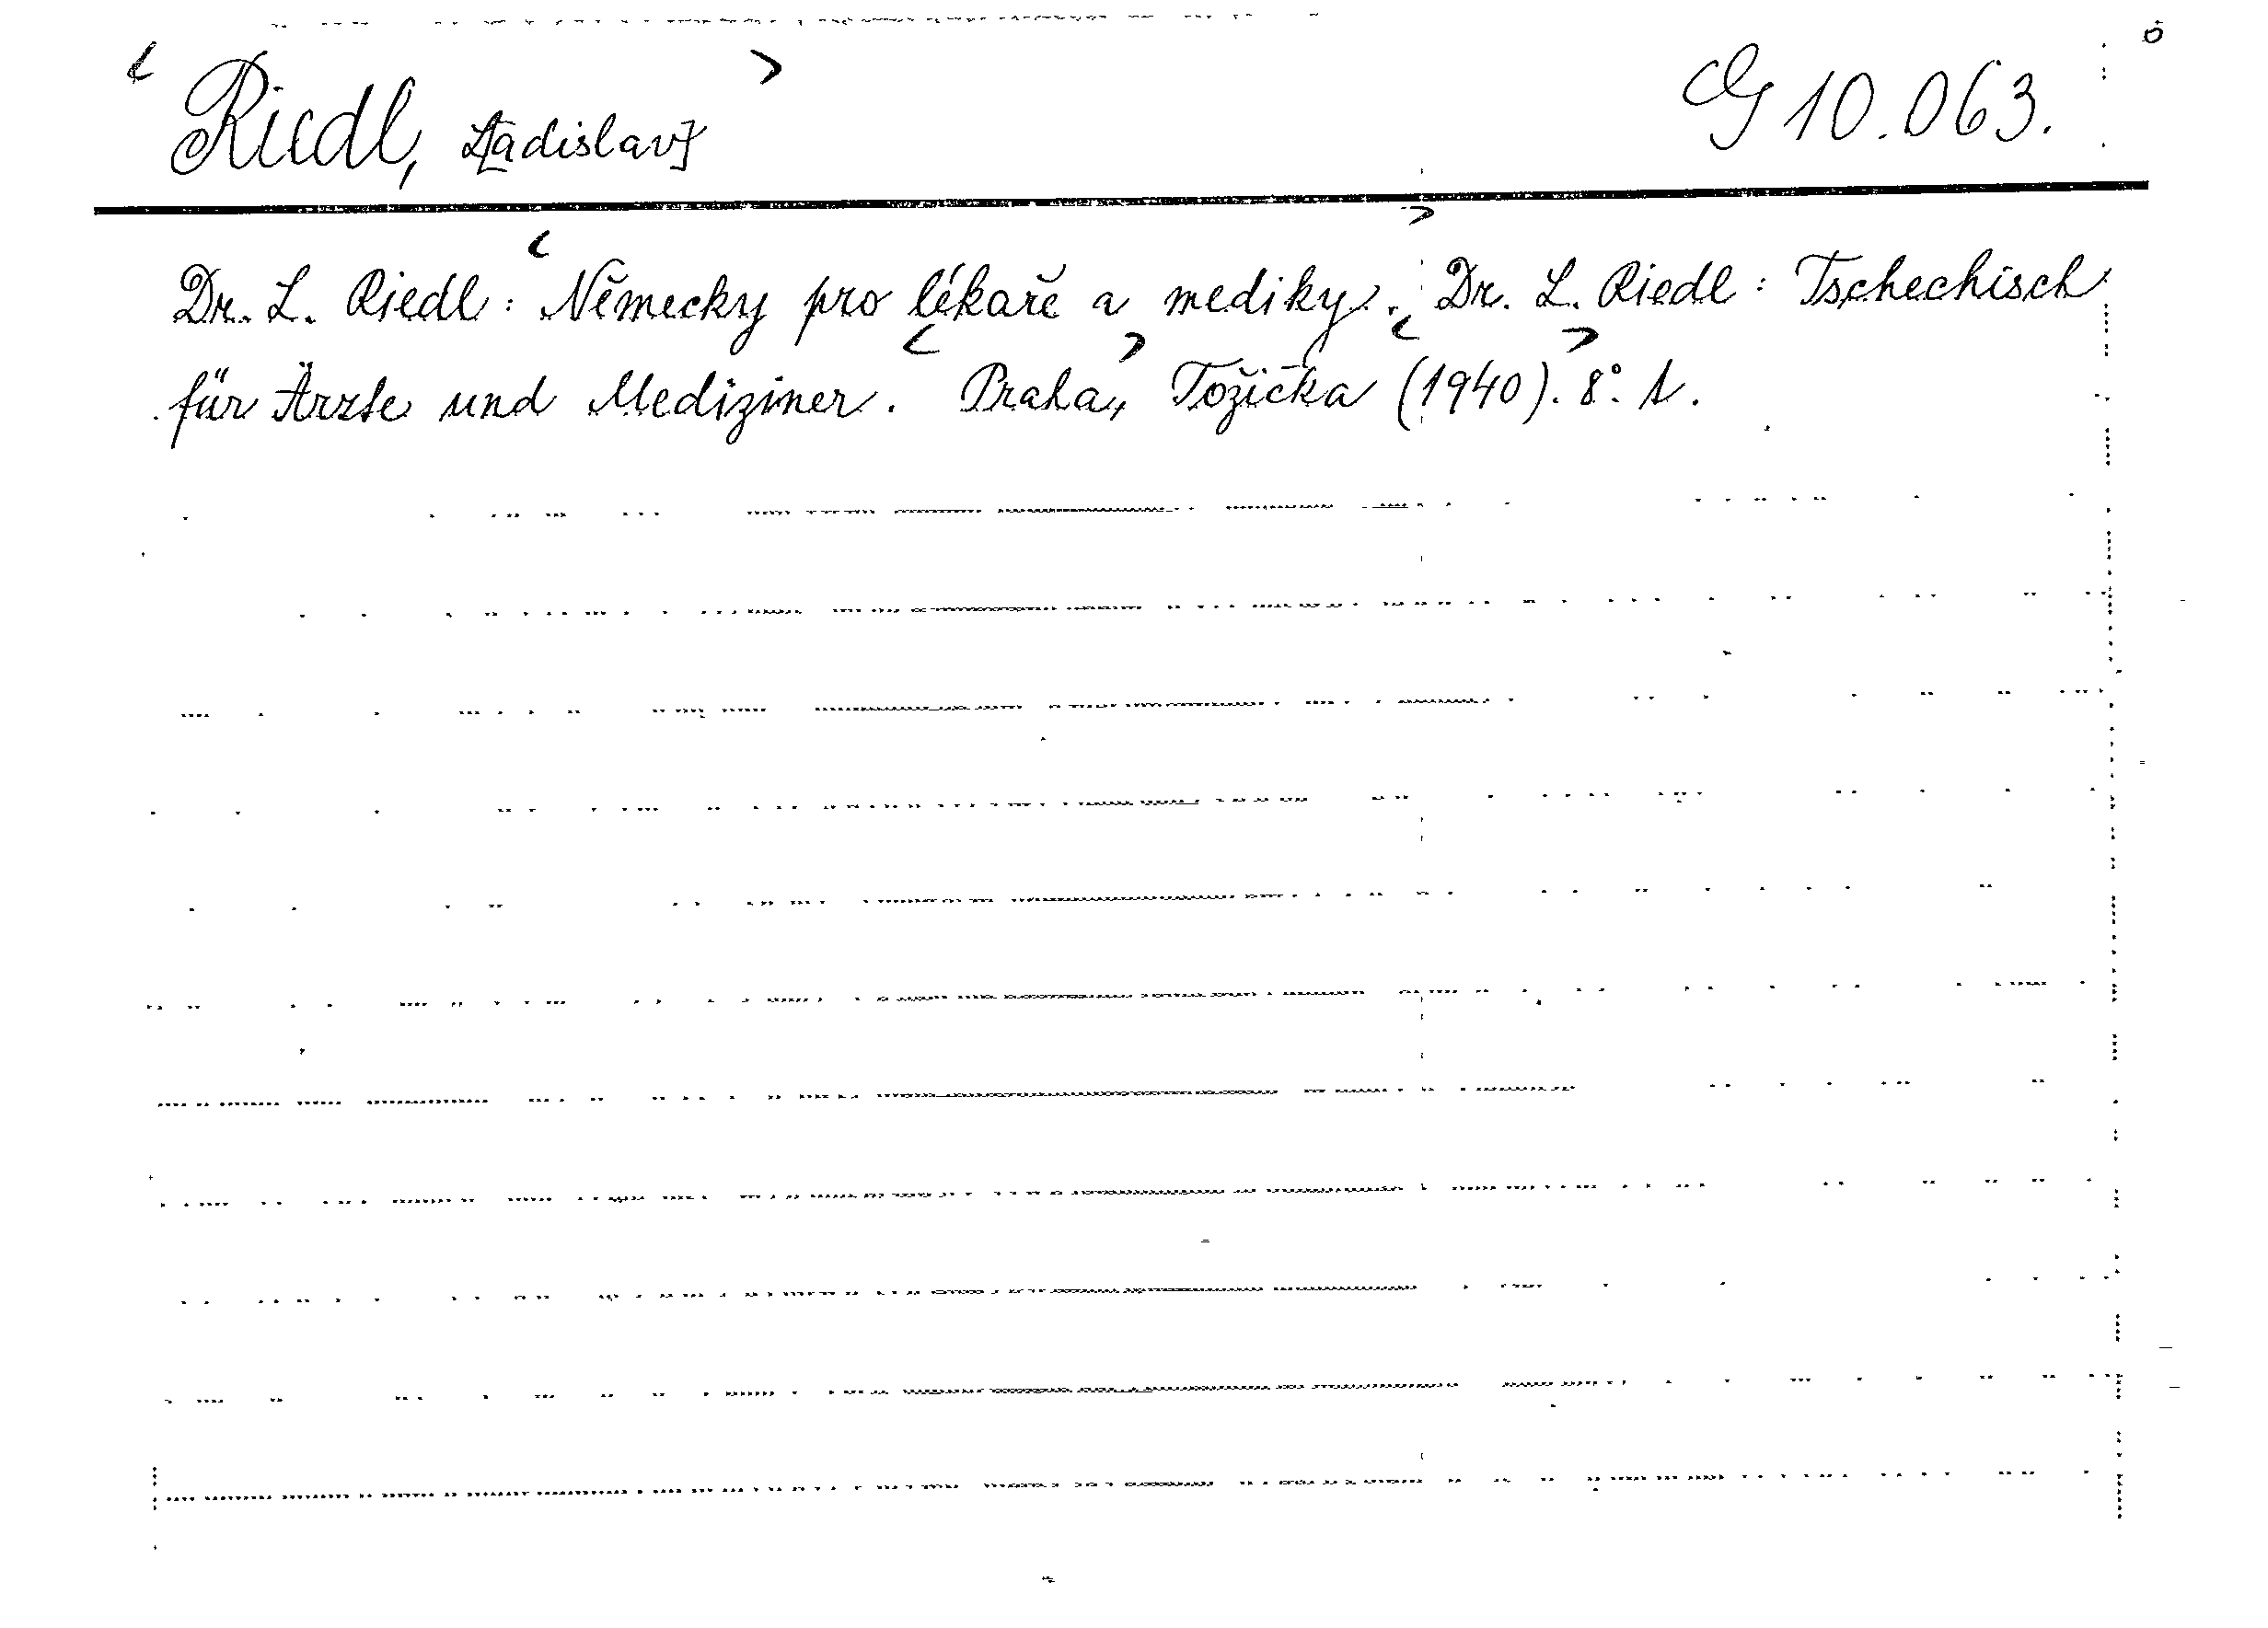 <Riedl, L[adislav]> G 10.063.
Dr. L. Riedl: <Německy pro lékaře a mediky.> Dr. L. Riedl: Tschechisch
für Ärzte und Mediziner. <Praha,> Tožička <(1940).> 8°. A.